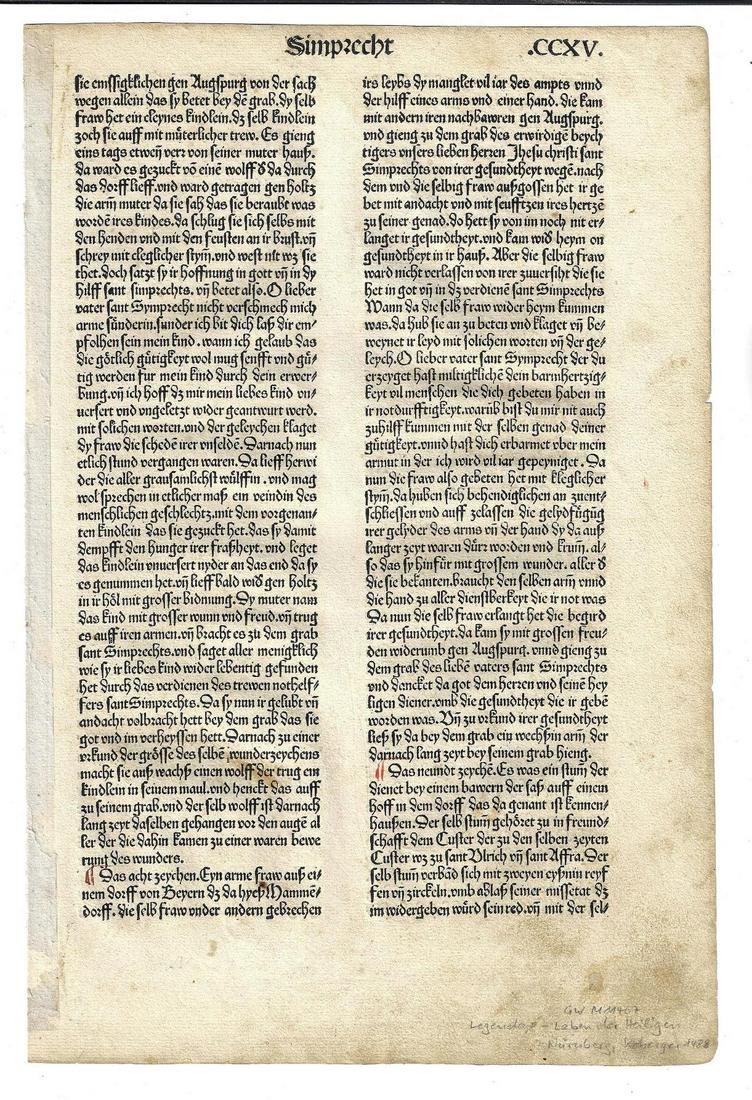 Simprecht .CCXV.
sie emssigklichen gen Augspurg von der sach
wegen allein das sy betet bey dē grab. dy selb
fraw het ein cleynes kindlein. dz selb kindlein
zoch sie auff mit müterlicher trew. Es gieng
eins tags etweṉ verr von seiner muter hauß.
da ward es gezuckt vō einē wolff d̄ da durch
das dorff lieff. vnd ward getragen gen holtz
die arm̄ muter da sie sah das sie beraubt was
wordē ires kindes. da schlug sie sich selbs mit
den henden vnd mit den feusten an ir brust. vn̄
schrey mit cleglicher stym̄. vnd west nit wz sie
thet. doch satzt sy ir hoffnung in gott vn̄ in dy
hilff sant simprechts. vn̄ betet also. O lieber
vater sant Symprecht nicht verschmech mich
arme sünderin. sunder ich bit dich laß dir em⸗
pfolhen sein mein kind. wann ich gelaub das
die götlich gütigkeyt wol mug senfft vnd gü⸗
tig werden fur mein kind durch dein erwer⸗
bung. vn̄ ich hoff dz mir mein liebes kind vn⸗
uersert vnd vngeletzt wider geantwurt werd.
mit solichen worten. vnd der geleychen klaget
dy fraw die schedē irer vnseldē. Darnach nun
etlich stund vergangen waren. Da lieff herwi
der die aller grausamlichst wülffin. vnd mag
wol sprechen in etlicher maß ein veindin des
menschlichen geschlechtz. mit dem vorgenan⸗
ten kindlein das sie gezuckt het. das sy damit
dempfft den hunger irer fraßheyt. vnd leget
das kindlein vnuersert nyder an das end da sy
es genummen het. vn̄ lieff bald wid̄ gen holtz
in ir höl mit grosser bidnung. Dy muter nam
das kind mit grosser wunn vnd freud. vn̄ trug
es auff iren armen. vn̄ bracht es zu dem grab
sant Simprechts. vnd saget aller menigklich
wie sy ir liebes kind wider lebentig gefunden
het durch das verdienen des trewen nothelf⸗
fers sant Simprechts. Da sy nun ir gelübt vn̄
andacht volbracht hett bey dem grab das sie
got vnd im verheyssen hett. Darnach zu einer
vrkund der grösse des selbē wunderzeychens
macht sie auß wachß einen wolff der trug ein
kindlein in seinem maul. vnd henckt das auff
zu seinem grab. vnd der selb wolff ist darnach
lang zeyt daselben gehangen vor den augē al
ler der die dahin kamen zu einer waren bewe
rung des wunders.
¶ Das acht zeychen. Eyn arme fraw auß ei⸗
nem dorff von Beyern dz da hyeß Mammē⸗
dorff. die selb fraw vnder andern gebrechen
irs leybs dy manglet vil iar des ampts vnnd
der hilff eines arms vnd einer hand. die kam
mit andern iren nachbawren gen Augspurg.
vnd gieng zu dem grab des erwirdigē beych
tigers vnsers lieben herren Jhesu christi sant
Simprechts von irer gesundtheyt wegē. nach
dem vnd die selbig fraw außgossen het ir ge
bet mit andacht vnd mit seufftzen ires hertzē
zu seiner genad. do hett sy von im noch nit er⸗
langet ir gesundtheyt. vnd kam wid̄ heym on
gesundtheyt in ir hauß. Aber die selbig fraw
ward nicht verlassen von irer zuuersiht die sie
het in got vn̄ in dz verdienē sant Simprechts
Wann da die selb fraw wider heym kummen
was. da hub sie an zu beten vnd klaget vn̄ be⸗
weynet ir leyd mit solichen worten vn̄ der ge⸗
leych. O lieber vater sant Symprecht der du
erzeyget hast miltigklichē dein barmhertzig⸗
keyt vil menschen die dich gebeten haben in
ir notdurfftigkeyt. warūb bist du mir nit auch
zuhilff kummen mit der selben genad deiner
gütigkeyt. vnnd hast dich erbarmet vber mein
armut in der ich wird vil iar gepeyniget. Da
nun die fraw also gebeten het mit kleglicher
stym̄. da huben sich behendiglichen an zuent⸗
schliessen vnd auff zelassen die gelydfūgūg
irer gelyder des arms vn̄ der hand dy da auß
langer zeyt waren dürr worden vnd krum̄. al⸗
so das sy hinfür mit grossem wunder. aller d̄
die sie bekanten. braucht den selben arm̄ vnnd
die hand zu aller dienstberkeyt die ir not was
Da nun die selb fraw erlanget het die begird
irer gesundtheyt. da kam sy mit grossen freu⸗
den widerumb gen Augspurg. vnnd gieng zu
dem grab des liebē vaters sant Simprechts
vnd dancket da got dem herren vnd seinē hey
ligen diener. vmb die gesundtheyt die ir gebē
worden was. Vn̄ zu vrkund irer gesundtheyt
ließ sy da bey dem grab ein wechßin arm̄ der
darnach lang zeyt bey seinem grab hieng.
¶ Das neundt zeychē. Es was ein stum̄ der
dienet bey einem bawern der saß auff einem
hoff in dem dorff das da genant ist kennen⸗
haußen. Der selb stum̄ gehöret zu in freund⸗
schafft dem Custer der zu den selben zeyten
Custer wz zu sant Vlrich vn̄ sant Affra. Der
selb stum̄ verbād sich mit zweyen eyßnin reyf
fen vn̄ zirckeln. vmb ablaß seiner missetat dz
im widergeben würd sein red. vn̄ mit der sel⸗
GW M11407
Legenda – Leben der Heiligen
Nürnberg, Koberger 1488